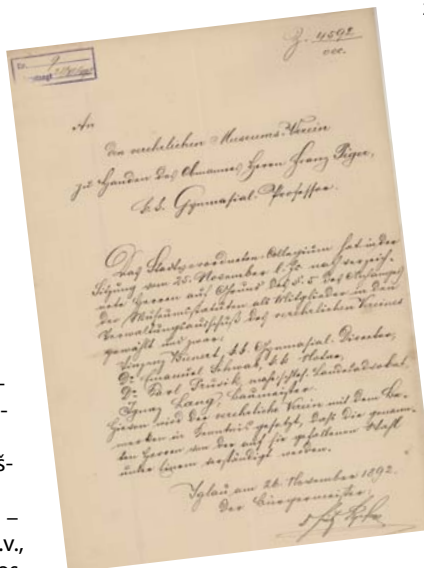 Z. 4592
An
den verehrlichen Museums-Verein
zu Handen des Obmannes Herrn Franz Piger,
k.k. Gymnasial-Professor.
Das Stadtverordneten-Collegium hat in der
Sitzung vom 25. November l. Js. nach verzeich-
nete Herren auf Grund des §. 5 des Anhanges
der Museumsstatuten als Mitglieder in den
Verwaltungsausschuß des verehrlichen Vereines
gewählt und zwar:
Wunet, k.k. Gymnasial-Director,
Dr. Emanuel Schwab, k.k. Notar,
Dr. Karl Landesadvokat,
Ignaz Lang, Baumeister.
Hievon wird der verehrliche Verein mit dem Be-
merken in Kenntnis gesetzt, daß die genann-
ten Herren von der auf sie gefallenen Wahl
unter Einem verständigt werden.
Iglau am 26. November 1892.
Der Bürgermeister:
-
-
š-
–
.v.,